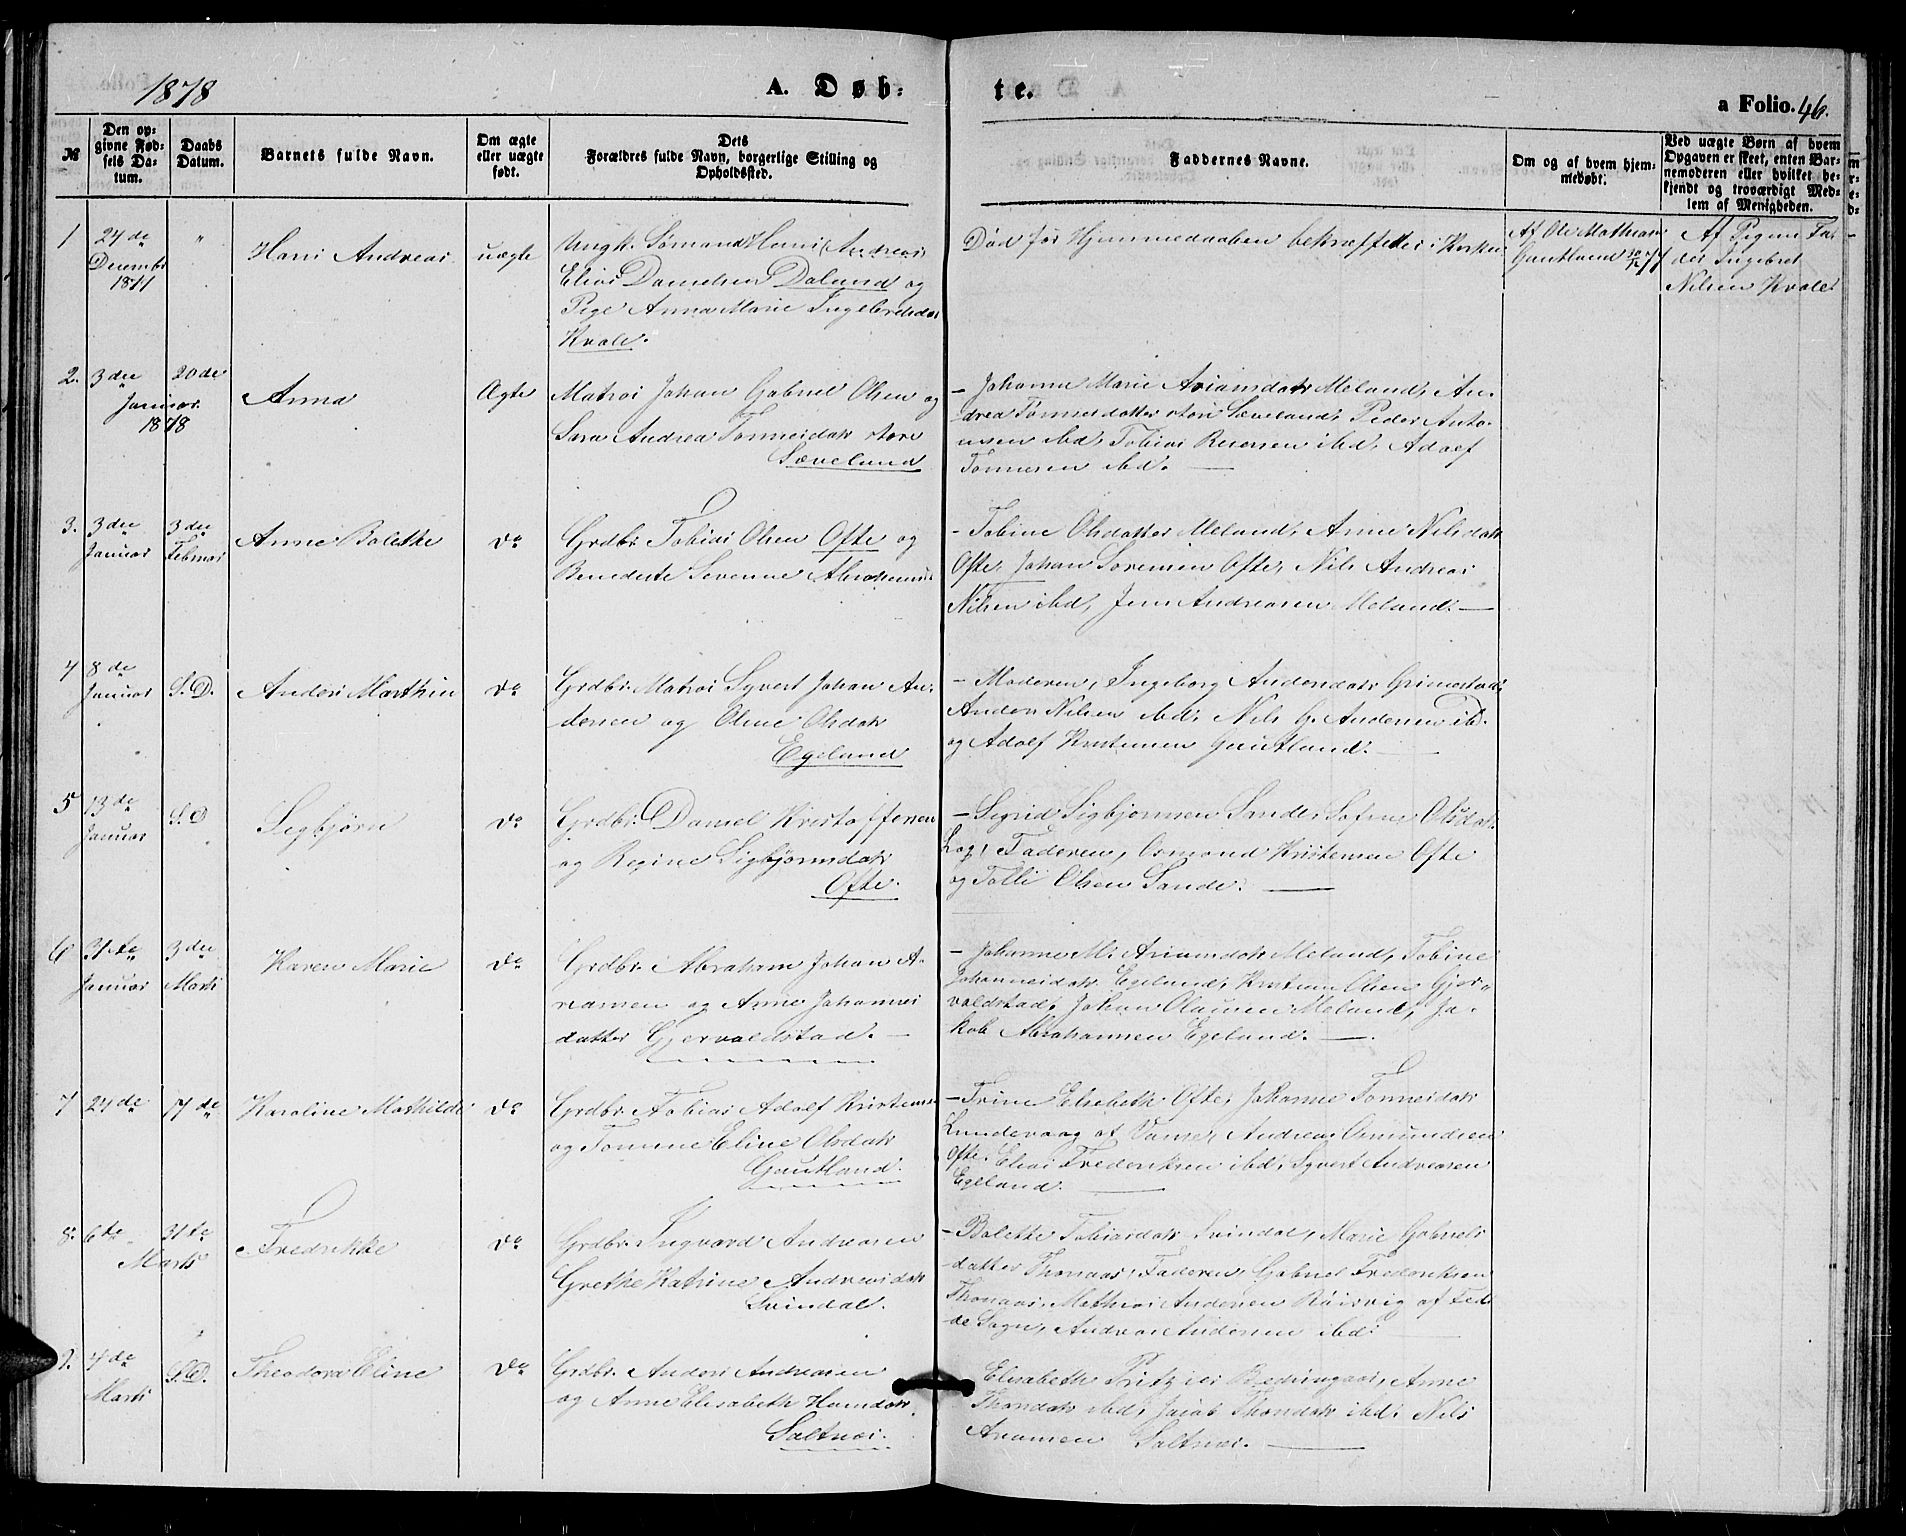 1878
A. Døb-
te.
a Folio. 46.
№
Den op-
givne Fød-
sels Da-
tum.
Daabs
Datum.
Barnets fulde Navn.
Om ægte
eller uægte
født.
Dets
Forældres fulde Navn, borgerlige Stilling og
Opholdssted.
Faddernes Navne.
Om og af hvem hjem-
medøbt.
Ved uægte Børn af hvem
Opgaven er skeet, enten Bar-
nemoderen eller hvilket be-
kjendt og troværdigt Med-
lem af Menigheden.
1
24 de
Decembr
1877
"
Hans Andreas
uægte
Ungk. Sømand Hans Andreas
Elias Danielsen Daland og
Pige Anna Marie Ingebretsdat
Kvale.
Død før Hjemmedaaben bekræftedes i Kirken
Af Ole Mathias
Gautland 30/12 77
Af Pigens Fa-
der Ingebret
Nilsen Kvale
2.
3 die
20 de
Januar
1878
Anna
Ægte
Matros Johan Gabriel Olsen og
Sara Andrea Tønnesdatr store
Sæveland
- Johanne Marie Ariansdatr Meland, An-
drea Tønnesdatter store Sæveland, Peder Anto-
nsen ibd, Tobias Reiersen ibd, Adolf
Tønnesen ibd.
3.
3 die
Januar
3 die
Februar
Anne Bolethe
do
Grdbr. Tobias Olsen Ofte og
Benedicte Severine Abrahamsd
- Tobine Olsdatter Meland, Anne Nilsdatr
Ofte, Johan Sørensen Ofte, Nils Andreas
Nilsen ibd, Jens Andreasen Meland.
4
8 de
Januar
S.D.
Anders Marthin
do
Grdbr. Matros Syvert Johan An-
dersen og Oline Olsdatr
Egeland
- Moderen, Ingeborg Andersdatr Grimestad,
Anders Nilsen ibd, Nils G. Andersen ibd.
og Adolf Kristensen Gautland.
5
13 de
Januar
S.D
Sigbjørn
do
Grdbr. Daniel Kristoffersen
og Regine Sigbjørnsdatr
Ofte.
- Sigrid Sigbjørnsen Sande, Sofie Olsdatr
Log, Faderen, Osmond Kristensen Ofte
og Tolli Olsen Sande.
6
31 te
Januar
3 die
Marts
Karen Marie
do
Grdbr. Abraham Johan A-
nansen og Anne Johannes
datter Gjervoldstad.
- Johanne M. Ariansdatr Meland, Tobine
Johannesdatr Egeland, Kristian Olsen Gjer-
voldstad, Johan Olausen Meland, Ja-
kob Abrahamsen Egeland.
7
24 de
17 de
Karoline Mathilde
do
Grdbr. Tobias Adolf Kristensen
og Tomine Eline Olsdatr
Gautland.
- Trine Elsebeth Ofte, Johanne Tønnesdatr
Lundevaag af Vanse, Andreas Osmundsen
Ofte, Elias Frederiksen ibd, Syvert Andreasen
Egeland.
8.
6 te
31 te
Marts
Fredrikke
do
Grdbr. Ingvard Andreasen
Grethe Katrine Andreasdatr
Svindal.
- Bolette Tobiasdatr Svindal, Marie Gabriels
datter Thonaas, Faderen, Gabriel Frederiksen
Thonaas, Mathias Andersen Røisvig af Fed-
de Sogn, Andreas Andersen ibd.
9.
4 de
Marts
S.D.
Theodora Eline
do
Grdbr. Anders Andreasen
og Anne Elisabeth Hansdatr
Saltnæs.
Elisabeth Pritzves, Anne
Thorsdatr ibd, Jacob Thorsdatr ibd, Nils
Anansen Saltnæs.